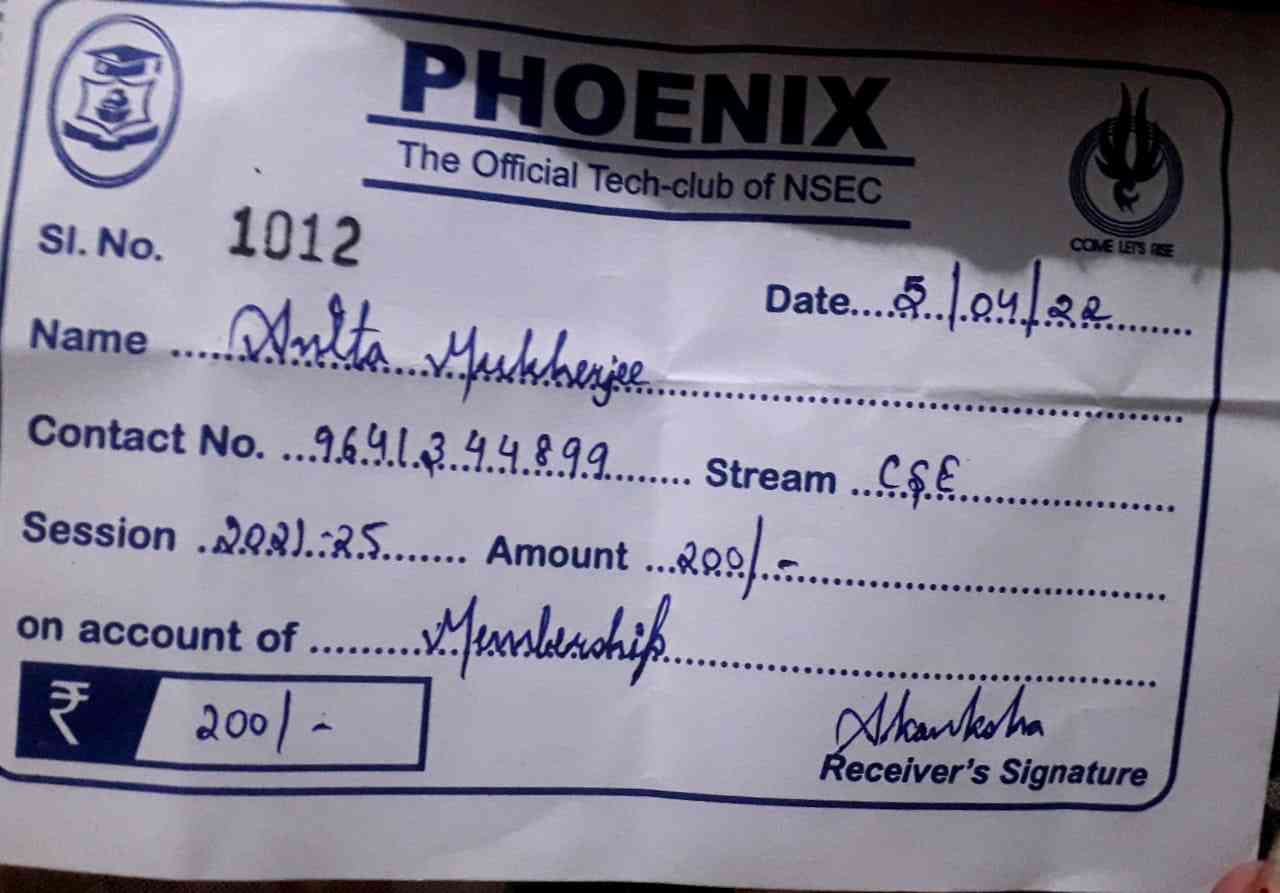 PHOENIX
The Official Tech-club of NSEC
COME LET'S RISE
Sl. No. 1012
Date....5/04/22
Name Anita Mukherjee
Contact No. 9641344899 Stream CSE
Session 2021-25 Amount 200/-
on account of Membership
₹ 200/-
Akanksha
Receiver's Signature